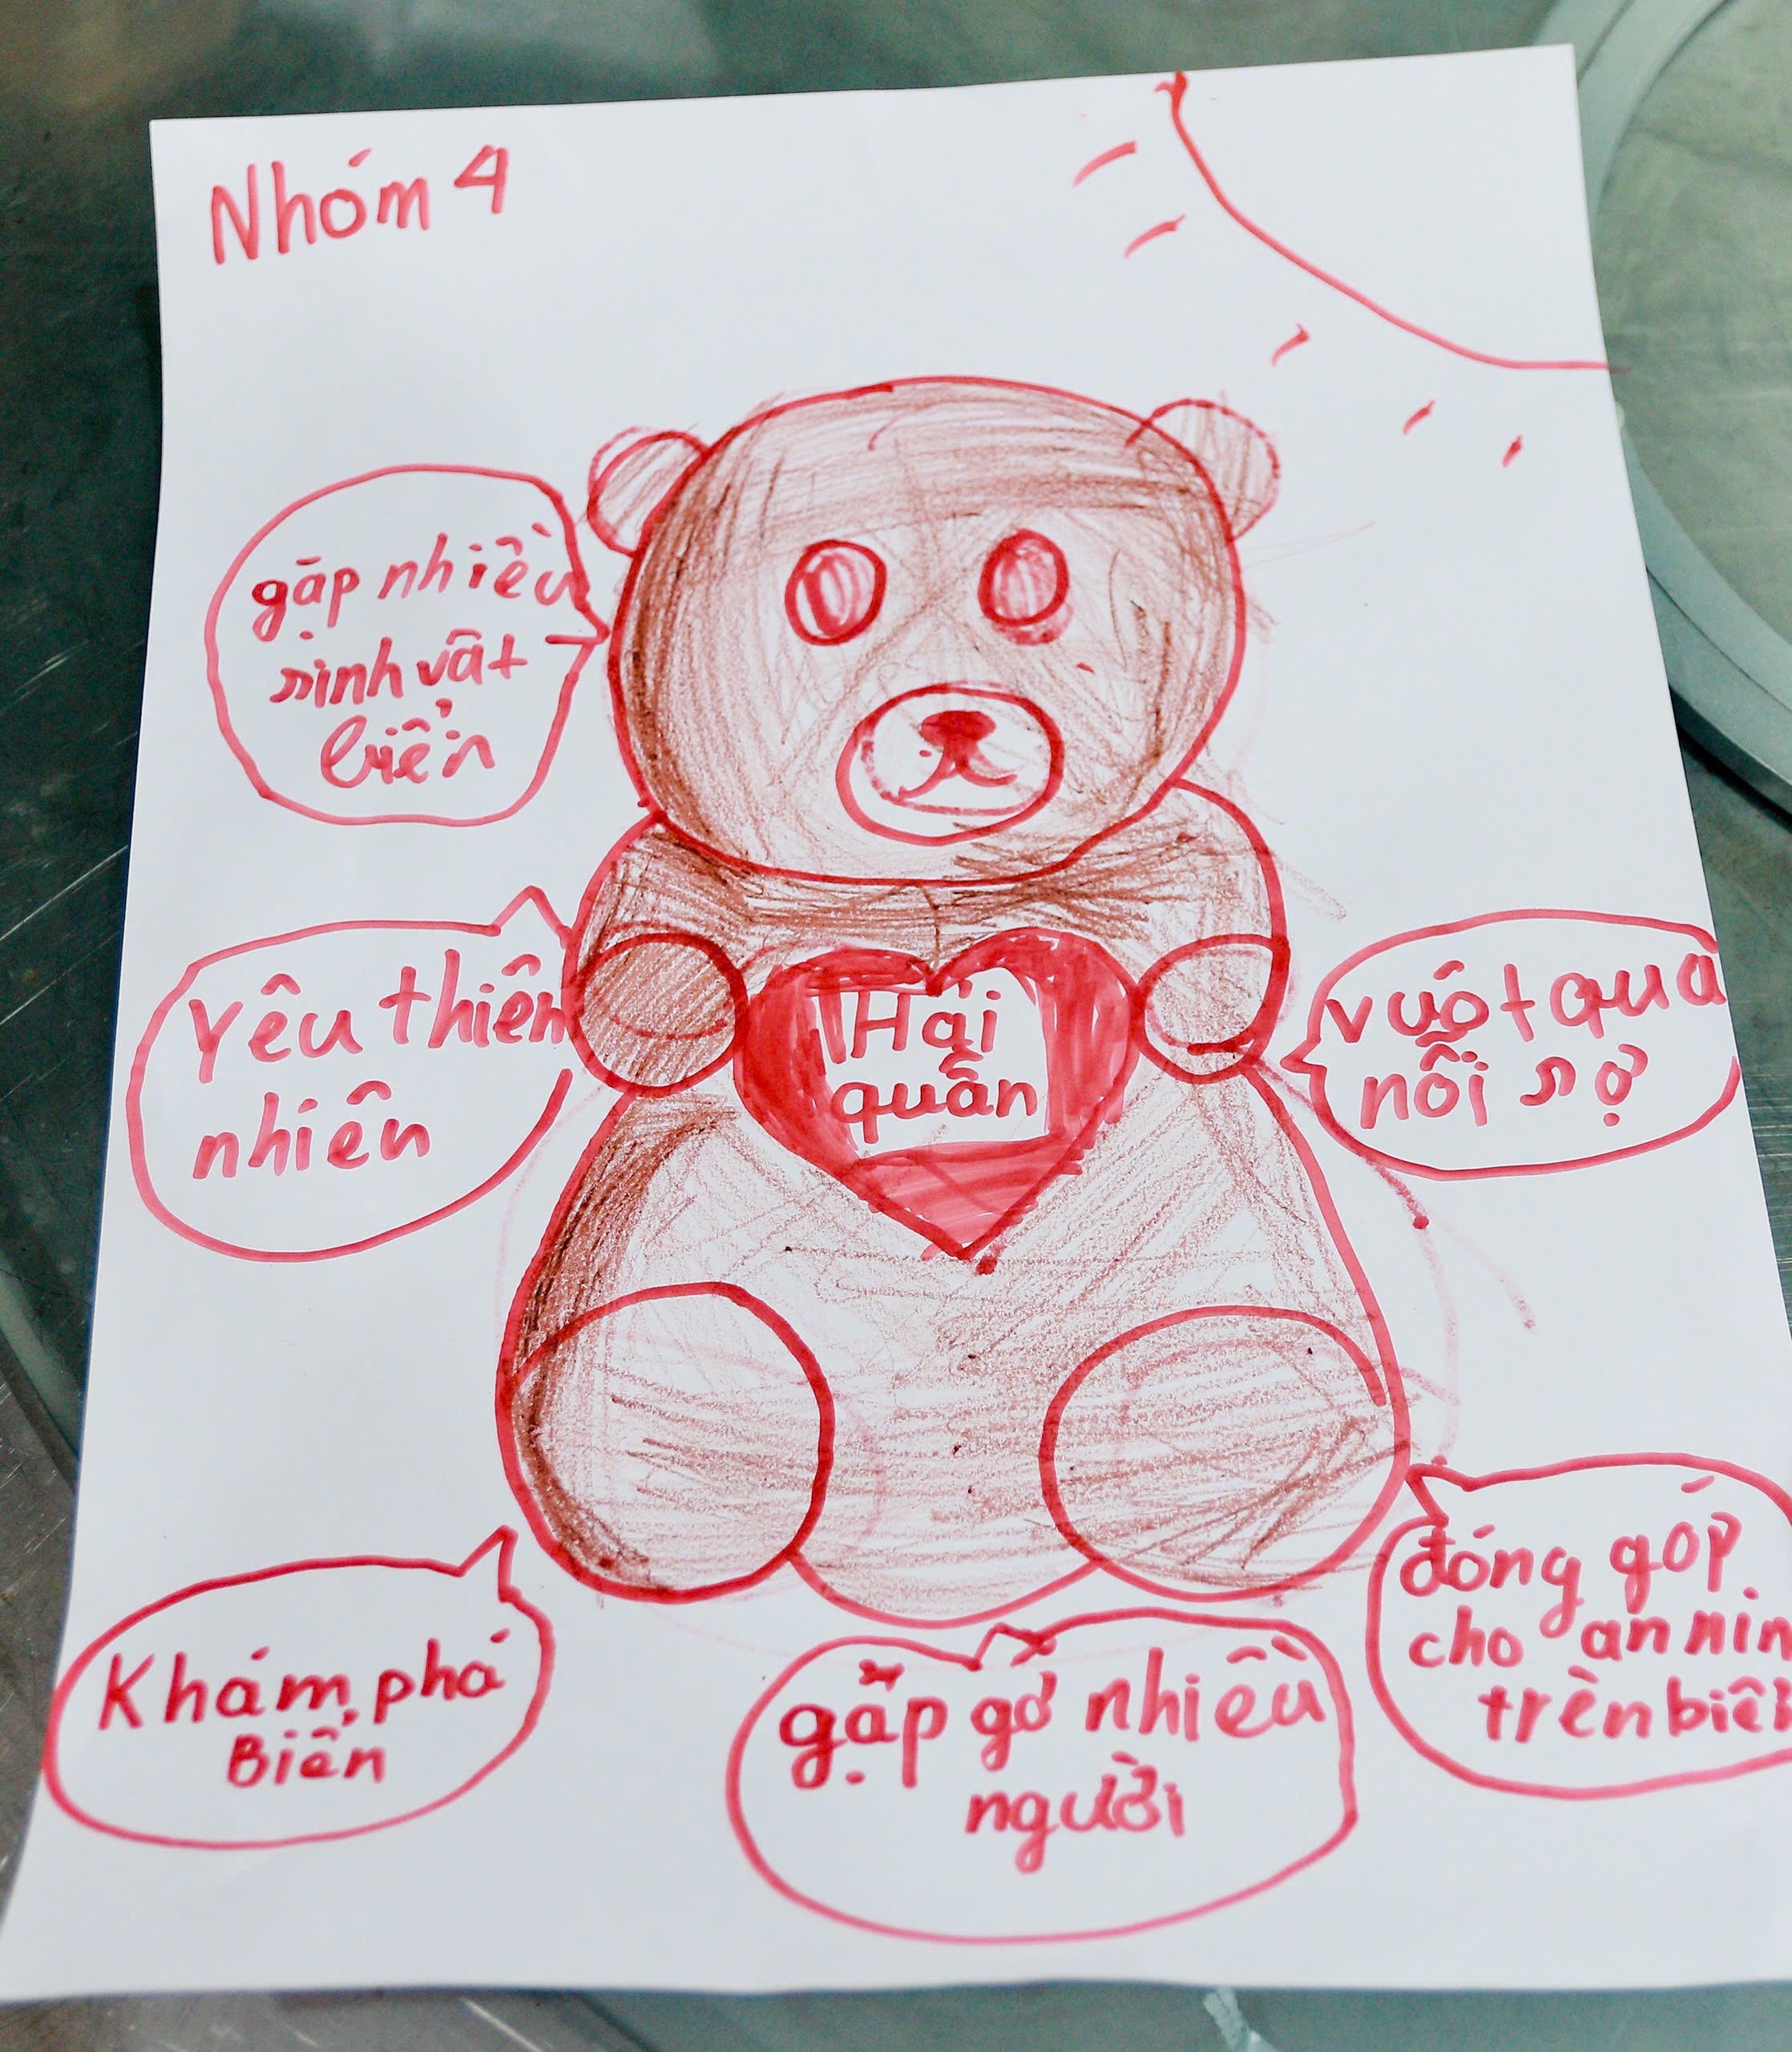 Nhóm 4
gặp nhiều
sinh vật
biển
yêu thiên
nhiên
Hải
quân
vượt qua
nỗi sợ
Khám phá
Biển
gặp gỡ nhiều
người
đóng góp
cho an nin
trên biể